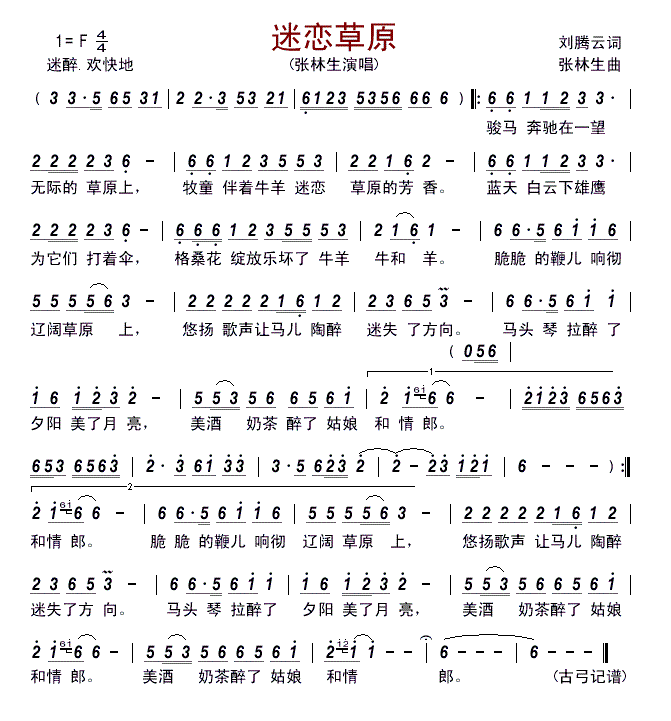 迷恋草原
1= F 4/4
刘腾云词
迷醉.欢快地
(张林生演唱)
张林生曲
( 3 3·5 65 31 | 2 2·3 53 21 | 6123 5356 66 6 ) ‖: 6 6 1 1 2 3 3· |
骏马 奔驰在一望
2 2 2 2 3 6 – | 6 6 1 2 3 5 5 5 | 2 2 2 1 6 2 – | 6 6 1 1 2 3 3· |
无际的 草原上， 牧童 伴着牛羊 迷恋 草原的芳 香。 蓝天 白云下雄鹰
2 2 2 2 3 6 – | 6 6 6 1 2 3 5 5 5 3 | 2 1 6 6 – | 6 6·5 6 i i 6 |
为它们 打着伞， 格桑花 绽放乐坏了 牛羊 牛和 羊。 脆脆 的鞭儿 响彻
5 5 5 5 6 3 – | 2 2 2 2 2 1 6 1 2 | 2 3 6 5 3 – | 6 6·5 6 i i |
辽阔草原 上， 悠扬 歌声让马儿 陶醉 迷失 了方向。 马头 琴 拉醉 了
( 0 5 6 |
1
i 6 i 2 3 2 – | 5 5 3 5 6 6 5 6 i | 2 i 6i 6 6 – | 2 i 2 3 6 5 6 3
夕阳 美了月 亮， 美酒 奶茶 醉了 姑娘 和 情 郎。
6 5 3 6 5 6 3 | 2· 3 6 i 3 3 | 3·5 6 2 3 2 | 2 – 2 3 i 2 i | 6 – – – ) :‖
2
2 i 6i 6 6 – | 6 6·5 6 i i 6 | 5 5 5 5 6 3 – | 2 2 2 2 2 1 6 1 2 |
和情 郎。 脆 脆 的鞭儿 响彻 辽阔 草原 上， 悠扬歌声 让马儿 陶醉
2 3 6 5 3 – | 6 6·5 6 i i | i 6 i 2 3 2 – | 5 5 3 5 6 6 5 6 i |
迷失了方 向。 马头 琴 拉醉了 夕阳 美了月 亮， 美酒 奶茶醉了 姑娘
2 i 6i 6 6 – | 5 5 3 5 6 6 5 6 i | 2 i2 i i – – | 6 – – – | 6 – – ‖
和情 郎。 美酒 奶茶醉了 姑娘 和情 郎。 (古弓记谱)